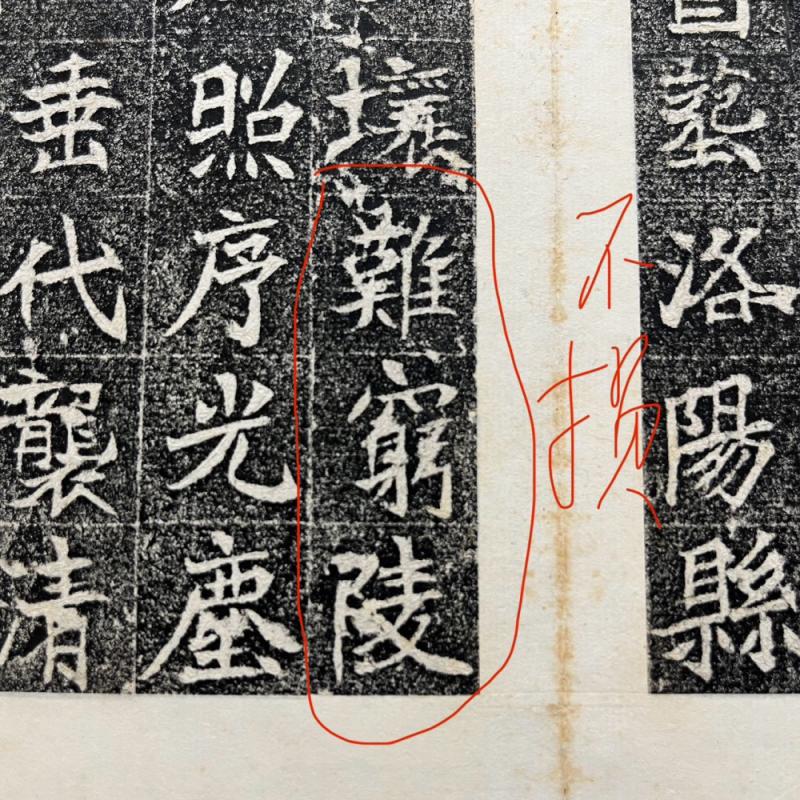 塟洛陽縣
不损
壤難窮陵
照序光塵
垂代襲清